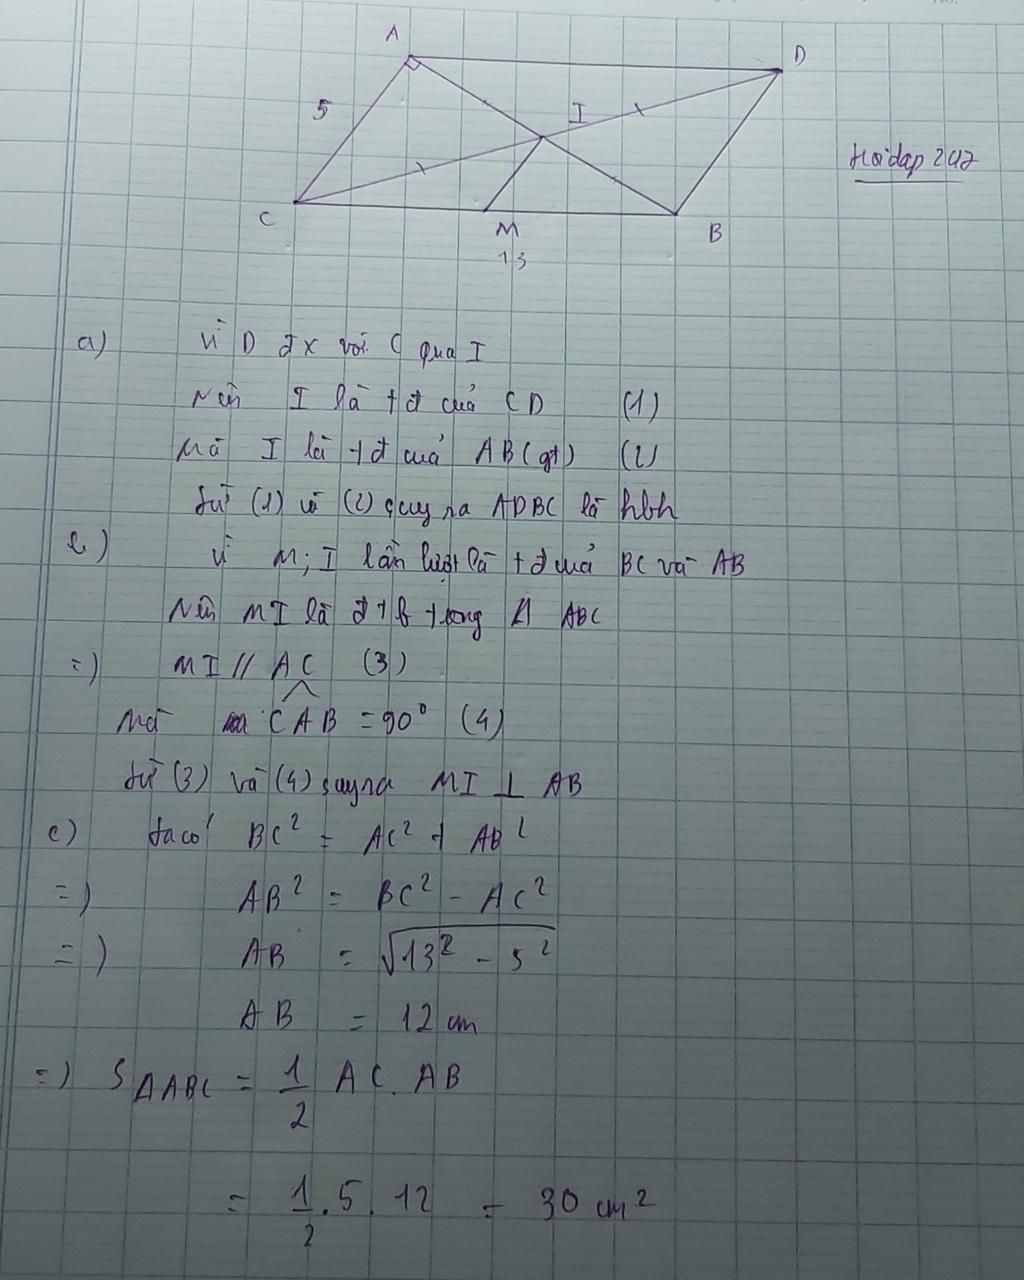 A
D
5
I
Hoidap 247
C
M
B
13
a) Vì D đx với C qua I
Nên I là tđ của CD (1)
Mà I là tđ của AB (gt) (2)
Từ (1) và (2) suy ra ADBC là hbh
b) Vì M; I lần lượt là tđ của BC và AB
Nên MI là đtb trong Δ ABC
=) MI // AC (3)
Mà CAB = 90° (4)
Từ (3) và (4) suy ra MI ⊥ AB
c) Ta có BC² = AC² + AB²
=) AB² = BC² - AC²
=) AB = √13² - 5²
AB = 12 cm
=) SΔABC = 1/2 AC . AB
= 1/2 . 5 . 12 = 30 cm²